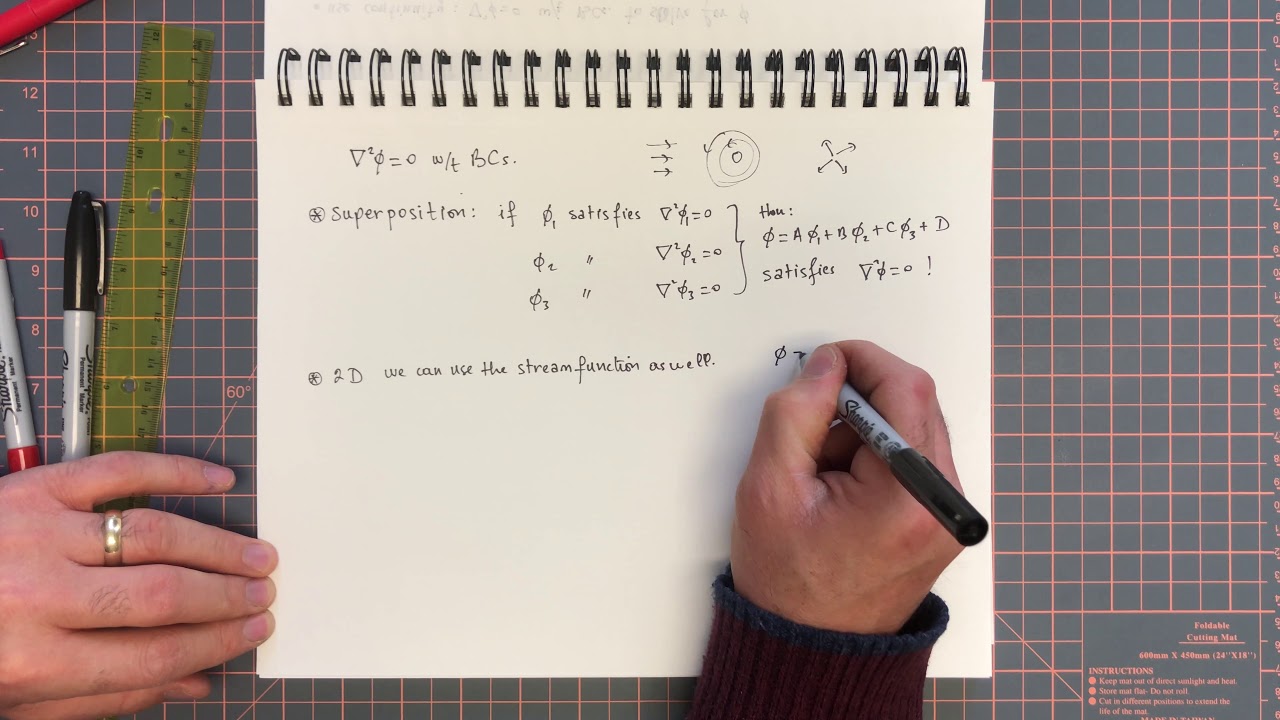 ∇²φ=0 w/t BCs.
⊛ superposition: if φ₁ satisfies ∇²φ₁=0
φ₂ " ∇²φ₂=0
φ₃ " ∇²φ₃=0
then:
φ=Aφ₁+Bφ₂+Cφ₃+D
satisfies ∇²φ=0 !
⊛ 2D we can use the streamfunction as well.
φ →
12
11
10
9
8
7
60°
Sharpie
Sharpie
Sharpie
Foldable
Cutting Mat
600mm X 450mm (24"X18")
INSTRUCTIONS
Keep mat out of direct sunlight and heat.
Store mat flat- Do not roll
Cut in different positions to extend the
life of the mat.
MADE IN TAIWAN